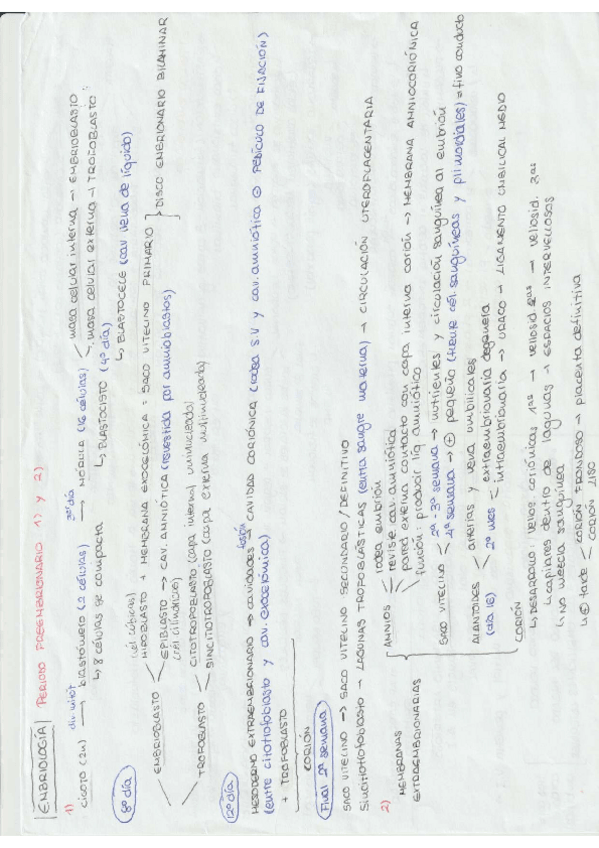 EMBRIOLOGÍA PERIODO PREEMBRIONARIO 1) y 2)
1)
CIGOTO (2n) div. mitót → BLASTÓMERO (2 células) 3er día → MÓRULA (16 células) < masa celular interna → EMBRIOBLASTO
masa celular externa → TROFOBLASTO
↳ 8 células se compacta
↳ BLASTOCISTO (4º día)
↳ BLASTOCELE (cav llena de líquido)
8º día
EMBRIOBLASTO < HIPOBLASTO (cél cúbicas) + MEMBRANA EXOCELÓMICA = SACO VITELINO PRIMARIO
EPIBLASTO (cél cilíndricas) → CAV. AMNIÓTICA (revestida por amnioblastos)
} DISCO EMBRIONARIO BILAMINAR
TROFOBLASTO < CITOTROFOBLASTO (capa interna, uninucleada)
SINCITIOTROFOBLASTO (capa externa multinucleada)
12º día
MESODERMO EXTRAEMBRIONARIO → cavidades fusión → CAVIDAD CORIÓNICA (rodea S.V y cav. amniótica ⊖ PEDÍCULO DE FIJACIÓN)
(entre citotrofoblasto y cav. exocelómica)
+ TROFOBLASTO
CORIÓN
Final 2ª semana
SACO VITELINO → SACO VITELINO SECUNDARIO/DEFINITIVO
Sincitiotrofoblasto → LAGUNAS TROFOBLÁSTICAS (entra sangre materna) → CIRCULACIÓN UTEROPLACENTARIA
2)
MEMBRANAS EXTRAEMBRIONARIAS
AMNIOS < rodea embrión
reviste cav. amniótica
pared externa contacto con capa interna corión → MEMBRANA AMNIOCORIÓNICA
función: producir líq amniótico
SACO VITELINO < 2ª-3ª semana → nutrientes y circulación sanguínea al embrión
4ª semana → ⊕ pequeño (fuente cél sanguíneas y primordiales) = fino conducto
ALANTOIDES (día 16) < arterias y vena umbilicales
2º mes < extraembrionaria degenera
intraembrionaria → URACO → LIGAMENTO UMBILICAL MEDIO
CORIÓN
↳ DESARROLLO: vellos. coriónicas 1as → vellosid. 2as → vellosid. 3as
↳ capilares dentro de lagunas → ESPACIOS INTERVELLOSOS
↳ NO mezcla sanguínea
↳ ⊕ tarde < CORIÓN FRONDOSO → placenta definitiva
CORIÓN LISO